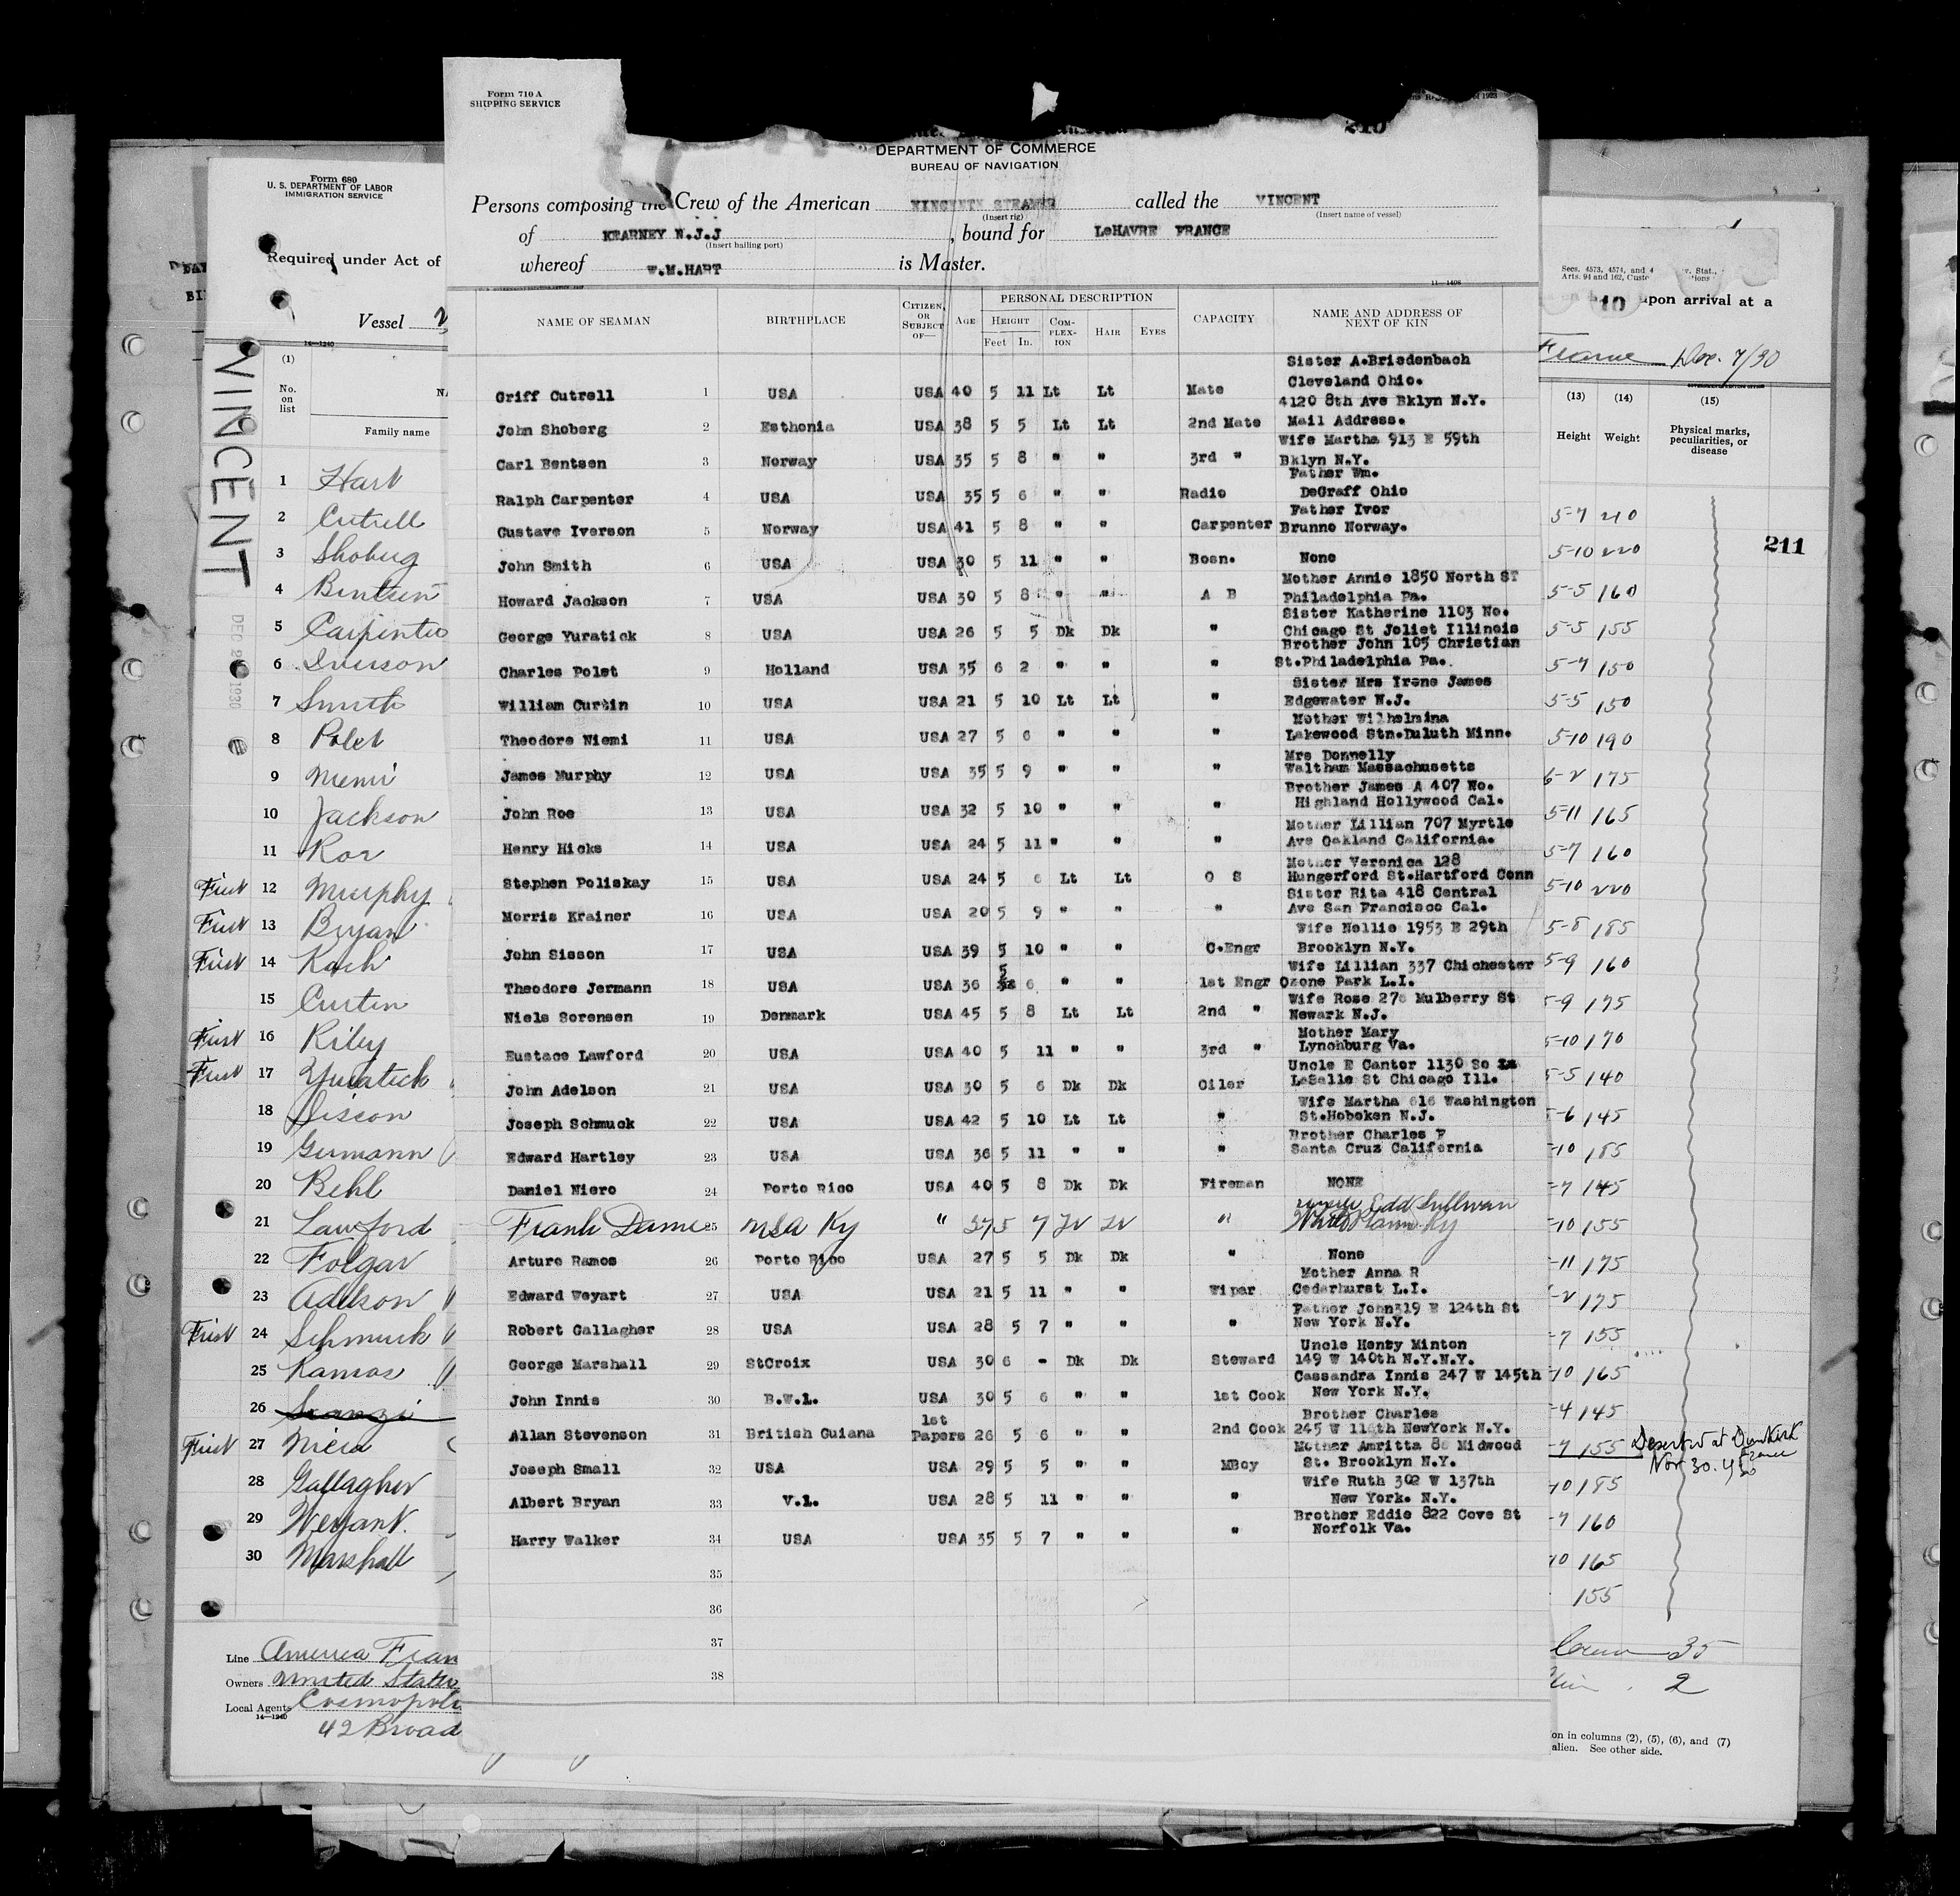 Form 710 A
SHIPPING SERVICE
DEPARTMENT OF COMMERCE
BUREAU OF NAVIGATION
Persons composing the Crew of the American STEAMER called the VINCENT
(Insert rig) (Insert name of vessel)
of KEARNEY N.J.J , bound for LeHAVRE FRANCE
(Insert hailing port)
whereof W.M.HART is Master.
11—1406
NAME OF SEAMAN BIRTHPLACE CITIZEN, OR SUBJECT OF— AGE PERSONAL DESCRIPTION CAPACITY NAME AND ADDRESS OF NEXT OF KIN
HEIGHT COM-PLEX-ION HAIR EYES
Feet In.
Sister A.Briedenbach
Cleveland Ohio.
Griff Cutrell 1 USA USA 40 5 11 Lt Lt Mate 4120 8th Ave Bklyn N.Y.
John Shoberg 2 Esthonia USA 38 5 5 Lt Lt 2nd Mate Mail Address.
Wife Martha 913 E 59th
Carl Bentsen 3 Norway USA 35 5 8 " " 3rd " Bklyn N.Y.
Father Wm.
Ralph Carpenter 4 USA USA 35 5 6 " " Radio DeGraff Ohio
Father Ivor
Gustave Iverson 5 Norway USA 41 5 8 " " Carpenter Brunno Norway.
John Smith 6 USA USA 30 5 11 " " Bosn. None
Mother Annie 1850 North ST
Howard Jackson 7 USA USA 30 5 8 " " A B Philadelphia Pa.
Sister Katherine 1103 No.
George Yuratick 8 USA USA 26 5 5 Dk Dk " Chicago St Joliet Illinois
Brother John 105 Christian
Charles Polet 9 Holland USA 35 6 2 " " " St.Philadelphia Pa.
Sister Mrs Irene James
William Curtin 10 USA USA 21 5 10 Lt Lt " Edgewater N.J.
Mother Wilhelmina
Theodore Niemi 11 USA USA 27 5 6 " " " Lakewood Stn.Duluth Minn.
Mrs Donnelly
James Murphy 12 USA USA 35 5 9 " " " Waltham Massachusetts
Brother James A 407 No.
John Roe 13 USA USA 32 5 10 " " " Highland Hollywood Cal.
Mother Lillian 707 Myrtle
Henry Hicks 14 USA USA 24 5 11 " " " Ave Oakland California.
Mother Veronica 128
Stephen Poliskay 15 USA USA 24 5 6 Lt Lt O S Hungerford St.Hartford Conn
Sister Rita 418 Central
Morris Krainer 16 USA USA 20 5 9 " " " Ave San Francisco Cal.
Wife Nellie 1953 E 29th
John Sisson 17 USA USA 39 5 10 " " C.Engr Brooklyn N.Y.
Wife Lillian 337 Chichester
Theodore Jermann 18 USA USA 36 5 6 " " 1st Engr Ozone Park L.I.
Wife Rose 276 Mulberry St
Niels Sorensen 19 Denmark USA 45 5 8 Lt Lt 2nd " Newark N.J.
Mother Mary
Eustace Lawford 20 USA USA 40 5 11 " " 3rd " Lynchburg Va.
Uncle E Cantor 1130 So
John Adelson 21 USA USA 30 5 6 Dk Dk Oiler LaSalle St Chicago Ill.
Wife Martha 616 Washington
Joseph Schmuck 22 USA USA 42 5 10 Lt Lt " St.Hoboken N.J.
Brother Charles F
Edward Hartley 23 USA USA 36 5 11 " " " Santa Cruz California
Daniel Niero 24 Porto Rico USA 40 5 8 Dk Dk Fireman NONE
Frank Dame 25 USA Ky " 37 5 7 " Edd Sullivan
Ky
Arturo Ramos 26 Porto Rico USA 27 5 5 Dk Dk " None
Mother Anna R
Edward Weyart 27 USA USA 21 5 11 " " Wipar Cedarhurst L.I.
Father John319 E 124th St
Robert Gallagher 28 USA USA 28 5 7 " " " New York N.Y.
Uncle Henry Minton
George Marshall 29 StCroix USA 30 6 - Dk Dk Steward 149 W 140th N.Y.N.Y.
Cassandra Innis 247 W 145th
John Innis 30 B.W.l. USA 30 5 6 " " 1st Cook New York N.Y.
Brother Charles
Allan Stevenson 31 British Guiana 1st Papers 26 5 6 " " 2nd Cook 245 W 116th NewYork N.Y.
Mother Amritta 86 Midwood
Joseph Small 32 USA USA 29 5 5 " " MBoy St. Brooklyn N.Y.
Wife Ruth 302 W 137th
Albert Bryan 33 V.l. USA 28 5 11 " " " New York. N.Y.
Brother Eddie 822 Cove St
Harry Walker 34 USA USA 35 5 7 " " " Norfolk Va.
35
36
37
38
Form 680
U. S. DEPARTMENT OF LABOR
IMMIGRATION SERVICE
Required under Act of
Vessel
14—1240
VINCENT
(1)
No. on list
Family name
1 Hart
2 Cutrell
3 Shoberg
4 Bentsen
5 Carpenter
6 Iverson
7 Smith
8 Polet
9 Niemi
10 Jackson
11 Roe
First 12 Murphy
First 13 Bryan
First 14 Koch
15 Curtin
First 16 Riley
First 17 Yuratick
18 Sisson
19 Germann
20 Behl
21 Lawford
22 Folgar
23 Adelson
First 24 Schmuck
25 Ramos
26
First 27 Niero
28 Gallagher
29 Weyant.
30 Marshall
Line America Fran
Owners United States
Local Agents Cosmopoli
14—1240
42 Broad
Secs. 4573, 4574, and 4
Arts. 94 and 162,
10
upon arrival at a
France Dec. 7/30
(13) (14) (15)
Height Weight Physical marks, peculiarities, or disease
211
5-7 210
5-10 220
5-5 160
5-5 155
5-7 150
5-5 150
5-10 190
6-2 175
5-11 165
5-7 160
5-10 220
5-8 185
5-9 160
5-9 175
5-10 170
5-5 140
5-6 145
-10 185
-7 145
-10 155
-11 175
-2 175
-7 155
-10 165
-4 145
-7 155 Deserted at Dunkirk France
Nov 30. 1930
-10 185
-7 160
10 165
155
35
2
on in columns (2), (5), (6), and (7)
alien. See other side.